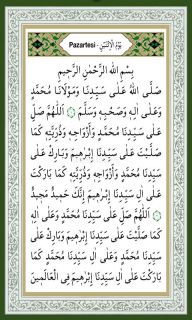 Pazartesi - يَوْمُ الْاِثْنَيْنِ
بِسْمِ اللهِ الرَّحْمٰنِ الرَّحِيمِ
صَلَّى اللهُ عَلَى سَيِّدِنَا وَمَوْلَانَا مُحَمَّدٍ
وَعَلَى اٰلِهِ وَصَحْبِهِ وَسَلَّمَ اَللّٰهُمَّ صَلِّ
عَلَى سَيِّدِنَا مُحَمَّدٍ وَاَزْوَاجِهِ وَذُرِّيَّتِهِ كَمَا
صَلَّيْتَ عَلَى سَيِّدِنَا اِبْرٰهِيمَ وَبَارِكْ عَلَى
سَيِّدِنَا مُحَمَّدٍ وَاَزْوَاجِهِ وَذُرِّيَّتِهِ كَمَا بَارَكْتَ
عَلَى اٰلِ سَيِّدِنَا اِبْرٰهِيمَ اِنَّكَ حَمِيدٌ مَجِيدٌ
اَللّٰهُمَّ صَلِّ عَلَى سَيِّدِنَا مُحَمَّدٍ وَعَلَى اٰلِهِ
كَمَا صَلَّيْتَ عَلَى سَيِّدِنَا اِبْرٰهِيمَ وَبَارِكْ عَلَى
سَيِّدِنَا مُحَمَّدٍ وَعَلَى اٰلِ سَيِّدِنَا مُحَمَّدٍ كَمَا
بَارَكْتَ عَلَى اٰلِ سَيِّدِنَا اِبْرٰهِيمَ فِى الْعَالَمِينَ